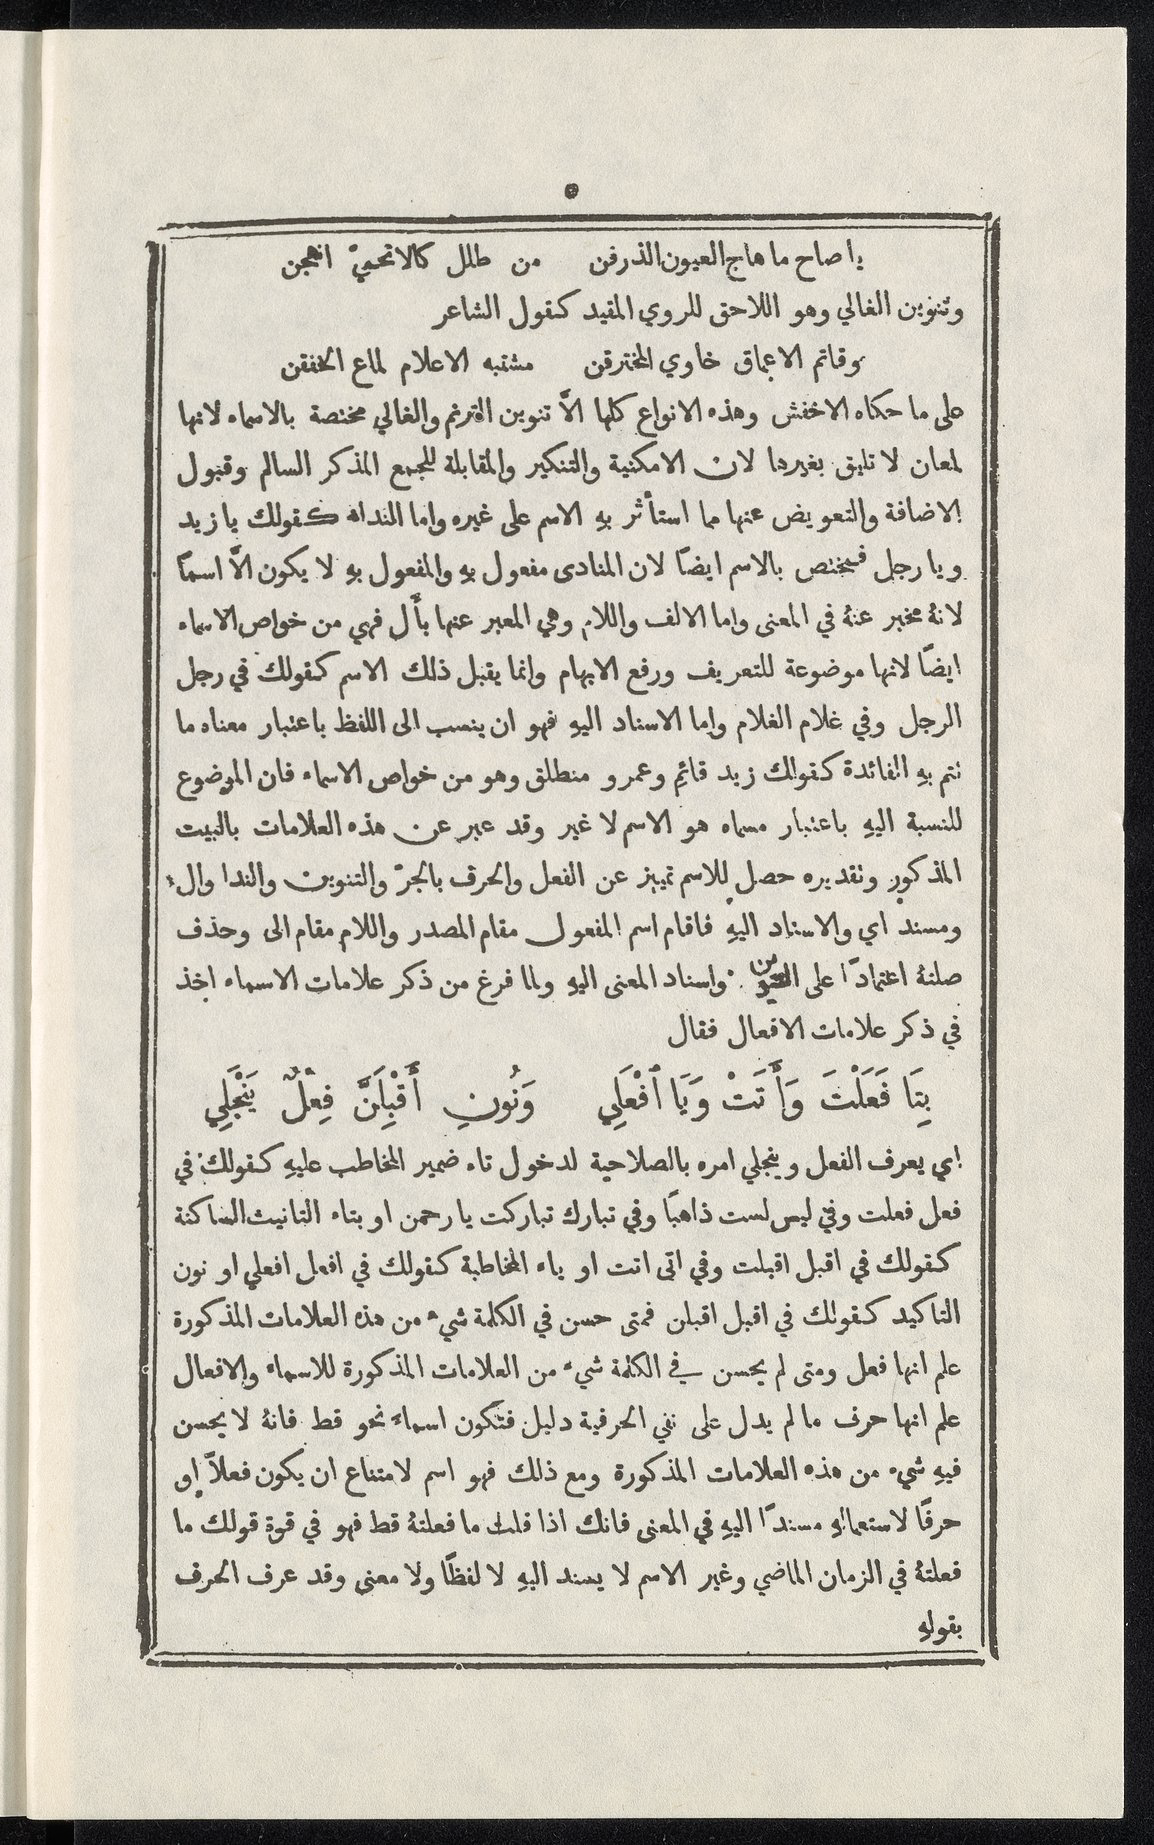 ٥
يا صاح ما هاج العيون الذرفن من طلل كالاتحميّ انهجن
وتنوين الغالي وهو اللاحق للروي المقيد كقول الشاعر
وقاتم الاعماق خاوي المخترقن مشتبه الاعلام لماع الخفقن
على ما حكاه الاخفش وهذه الانواع كلها الاَّ تنوين الترنم والغالي مختصة بالاسماء لانها
لمعان لا تليق بغيرها لان الامكنية والتنكير والمقابلة للجمع المذكر السالم وقبول
الاضافة والتعويض عنها مما استأثر بهِ الاسم على غيره واما النداء كقولك يا زيد
ويا رجل فيختص بالاسم ايضاً لان المنادى مفعول بهِ والمفعول بهِ لا يكون الاَّ اسماً
لانهُ مخبر عنهُ في المعنى واما الالف واللام وهي المعبر عنها بأَل فهي من خواص الاسماء
ايضاً لانها موضوعة للتعريف ورفع الابهام وانما يقبل ذلك الاسم كقولك في رجل
الرجل وفي غلام الغلام واما الاسناد اليهِ فهو ان ينسب الى اللفظ باعتبار معناه ما
تتم بهِ الفائدة كقولك زيد قائم وعمرو منطلق وهو من خواص الاسماء فان الموضوع
للنسبة اليهِ باعتبار مسماه هو الاسم لا غير وقد عبر عن هذه العلامات بالبيت
المذكور وتقديره حصل للاسم تمييز عن الفعل والحرف بالجرّ والتنوين والندا وال
ومسند اي والاسناد اليهِ فاقام اسم المفعول مقام المصدر واللام مقام الى وحذف
صلتهُ اعتماداً على واسناد المعنى اليهِ ولما فرغ من ذكر علامات الاسماء اخذ
في ذكر علامات الافعال فقال
بِتَا فَعَلْتَ وَأَتَتْ وَيَا ٱفْعَلِي وَنُونِ أَقْبِلَنَّ فِعْلٌ يَنْجَلِي
اي يعرف الفعل وينجلي امره بالصلاحية لدخول تاء ضمير المخاطب عليهِ كقولك في
فعل فعلت وفي ليس لست ذاهباً وفي تبارك تباركت يا رحمن او بتاء التانيث الساكنة
كقولك في اقبل اقبلت وفي اتى اتت او ياء المخاطبة كقولك في افعل افعلي او نون
التاكيد كقولك في اقبل اقبلن فمتى حسن في الكلمة شيء من هذه العلامات المذكورة
علم انها فعل ومتى لم يحسن في الكلمة شيء من العلامات المذكورة للاسماء والافعال
علم انها حرف ما لم يدل على نفي الحرفية دليل فتكون اسماً نحو قط فانهُ لا يحسن
فيهِ شيء من هذه العلامات المذكورة ومع ذلك فهو اسم لامتناع ان يكون فعلاً او
حرفاً لاستعمالهِ مسنداً اليهِ في المعنى فانك اذا قلت ما فعلتهُ قط فهو في قوة قولك ما
فعلتهُ في الزمان الماضي وغير الاسم لا يسند اليهِ لا لفظاً ولا معنى وقد عرف الحرف
بقولهِ